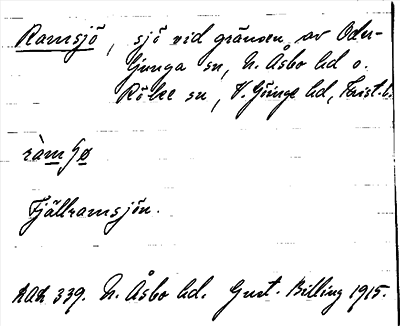 Ramsjö, sjö vid gränsen av Oder-
ljunga sn, N. Åsbo hd o.
Röke sn, V. Göinge hd, Krist. l.
ràmʃø
Fjällramsjön.
339. N. Åsbo hd. Gust. Billing 1915.